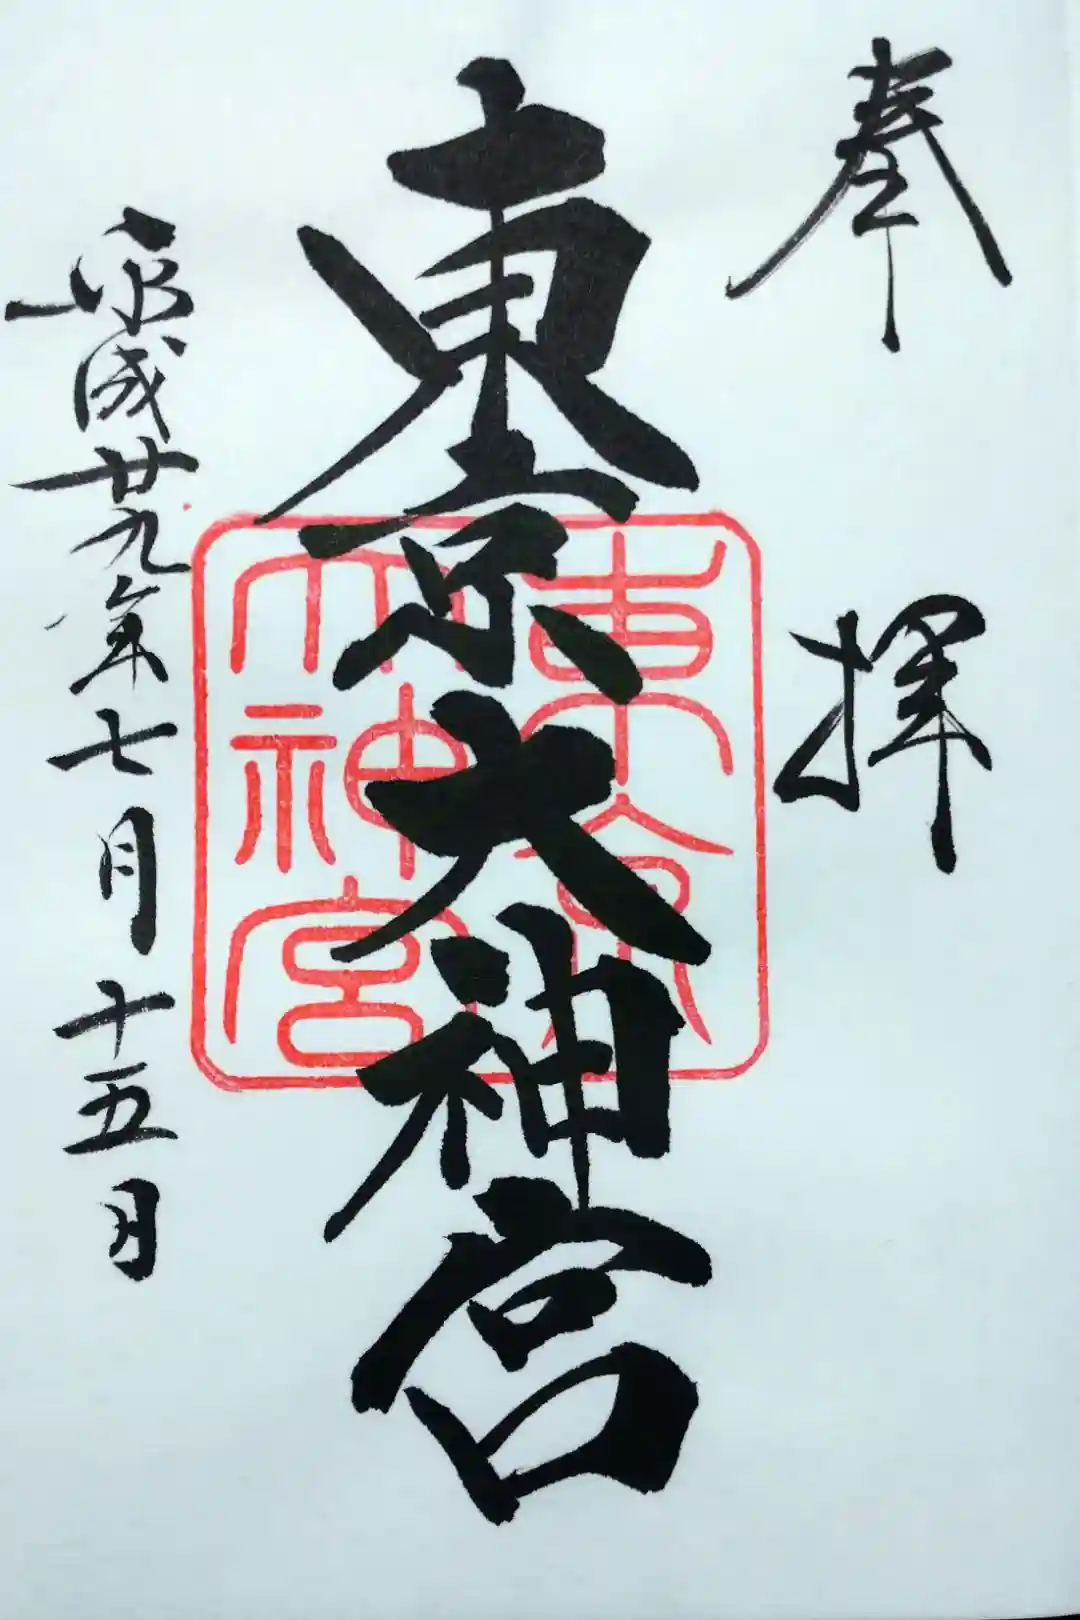 奉拝
東京大神宮
東京大神宮
平成廿九年七月十五日